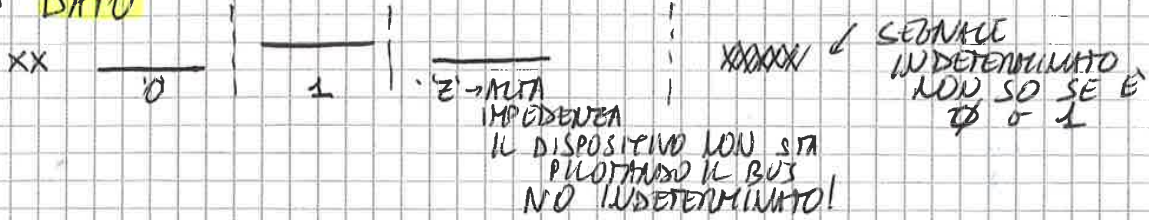 DATO
XX
'0'
1
'Z' → ALTA
IMPEDENZA
IL DISPOSITIVO NON STA
PILOTANDO IL BUS
NO INDETERMINATO!
XXXXXX
SEGNALE
INDETERMINATO
NON SO SE È
0 o 1